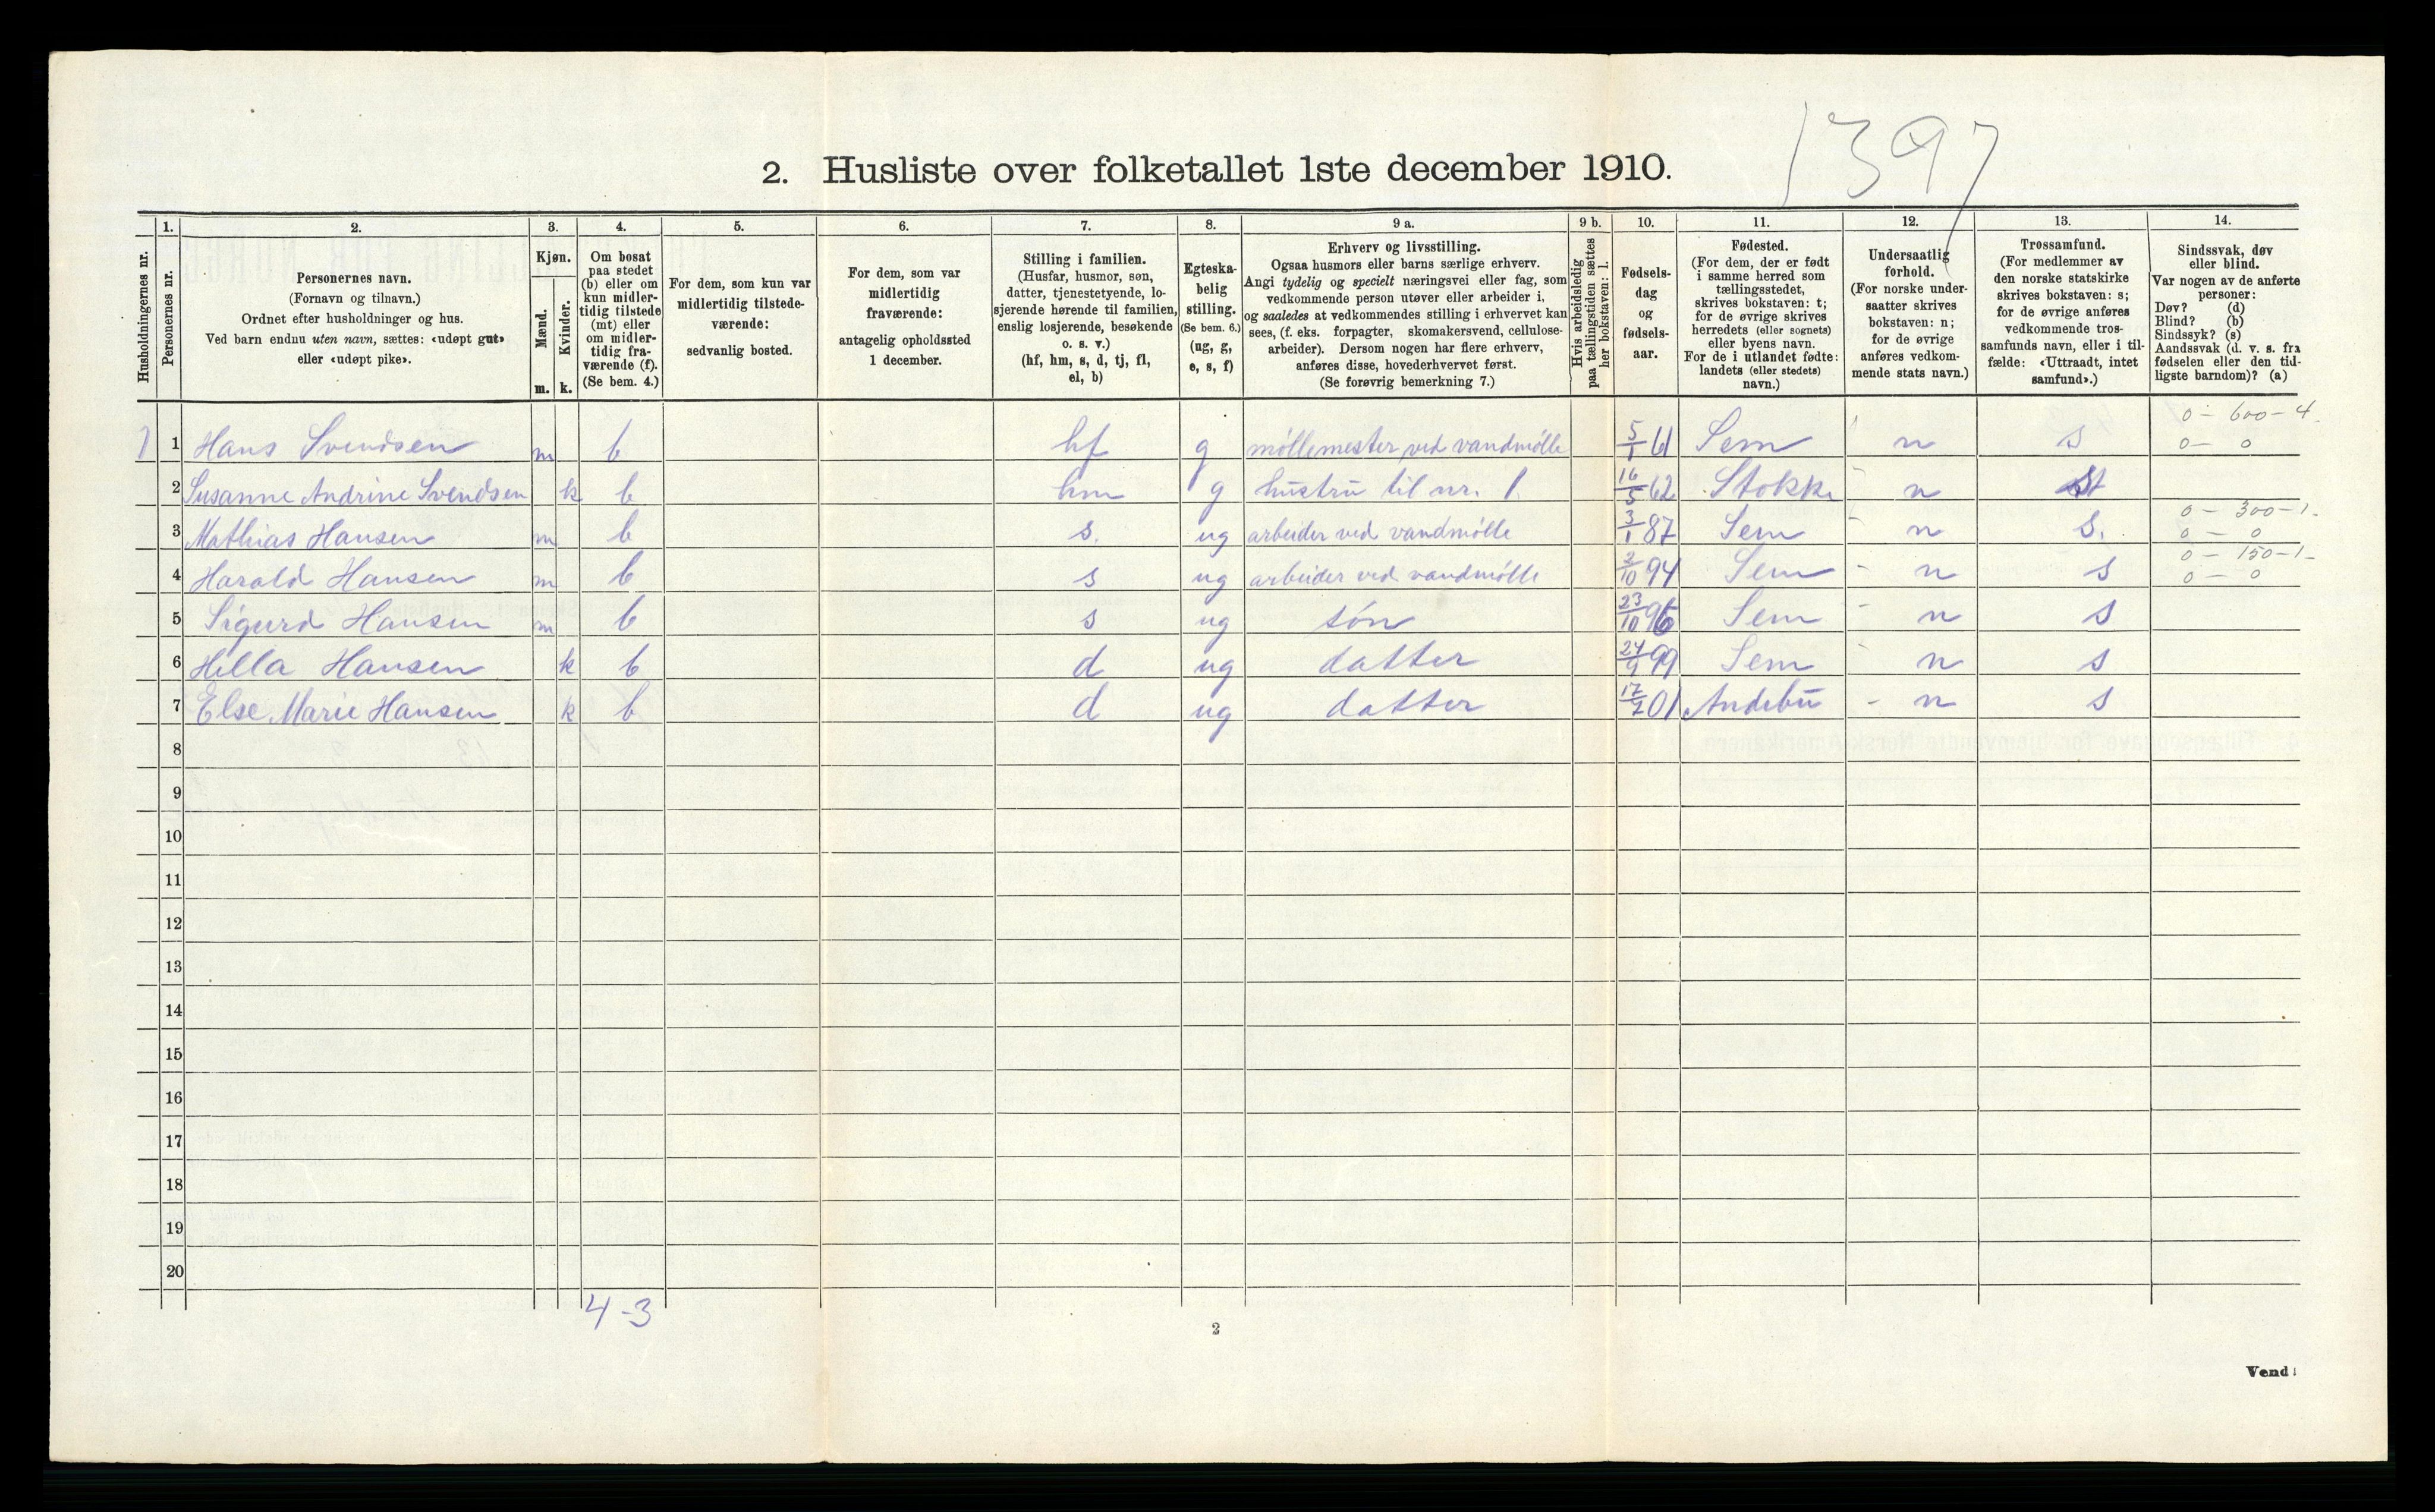 1397
2. Husliste over folketallet 1ste december 1910.
Husholdningernes nr.
1. Personernes nr.
2. Personernes navn. (Fornavn og tilnavn.) Ordnet efter husholdninger og hus. Ved barn endnu uten navn, sættes: «udøpt gut» eller «udøpt pike».
3. Kjøn. Mænd. m. Kvinder. k.
4. Om bosat paa stedet (b) eller om kun midlertidig tilstede (mt) eller om midlertidig fraværende (f). (Se bem. 4.)
5. For dem, som kun var midlertidig tilstedeværende: sedvanlig bosted.
6. For dem, som var midlertidig fraværende: antagelig opholdssted 1 december.
7. Stilling i familien. (Husfar, husmor, søn, datter, tjenestetyende, losjerende hørende til familien, enslig losjerende, besøkende o. s. v.) (hf, hm, s, d, tj, fl, el, b)
8. Egteskabelig stilling. (Se bem. 6.) (ug, g, e, s, f)
9 a. Erhverv og livsstilling. Ogsaa husmors eller barns særlige erhverv. Angi tydelig og specielt næringsvei eller fag, som vedkommende person utøver eller arbeider i, og saaledes at vedkommendes stilling i erhvervet kan sees, (f. eks. forpagter, skomakersvend, cellulosearbeider). Dersom nogen har flere erhverv, anføres disse, hovederhvervet først. (Se forøvrig bemerkning 7.)
9 b. Hvis arbeidsledig paa tællingstiden sættes her bokstaven: l.
10. Fødselsdag og fødselsaar.
11. Fødested. (For dem, der er født i samme herred som tællingsstedet, skrives bokstaven: t; for de øvrige skrives herredets (eller sognets) eller byens navn. For de i utlandet fødte: landets (eller stedets) navn.)
12. Undersaatlig forhold. (For norske undersaatter skrives bokstaven: n; for de øvrige anføres vedkommende stats navn.)
13. Trossamfund. (For medlemmer av den norske statskirke skrives bokstaven: s; for de øvrige anføres vedkommende trossamfunds navn, eller i tilfælde: «Uttraadt, intet samfund».)
14. Sindssvak, døv eller blind. Var nogen av de anførte personer: Døv? (d) Blind? (b) Sindssyk? (s) Aandssvak (d. v. s. fra fødselen eller den tidligste barndom)? (a)
1 1 Hans Svendsen m b hf g møllemester ved vandmølle 5/1 61 Sem n s 0 - 600 - 4. 0 - 0
2 Susanne Andrine Svendsen k b hm g hustru til nr. 1 16/5 62 Stokke - n
3 Mathias Hansen m b s. ug arbeider ved vandmølle 3/1 87 Sem - n s. 0 - 300 - 1. 0 - 0
4 Harald Hansen m b s ug arbeider ved vandmølle 2/10 94 Sem - n s 0 - 150 - 1 - 0 - 0
5 Sigurd Hansen m b s ug søn 23/10 96 Sem - n s
6 Hilla Hansen k b d ug datter 24/9 99 Sem - n s
7 Else Marie Hansen k b d ug datter 17/7 01 Andebu - n s
8
9
10
11
12
13
14
15
16
17
18
19
20
4 - 3
2
Vend!